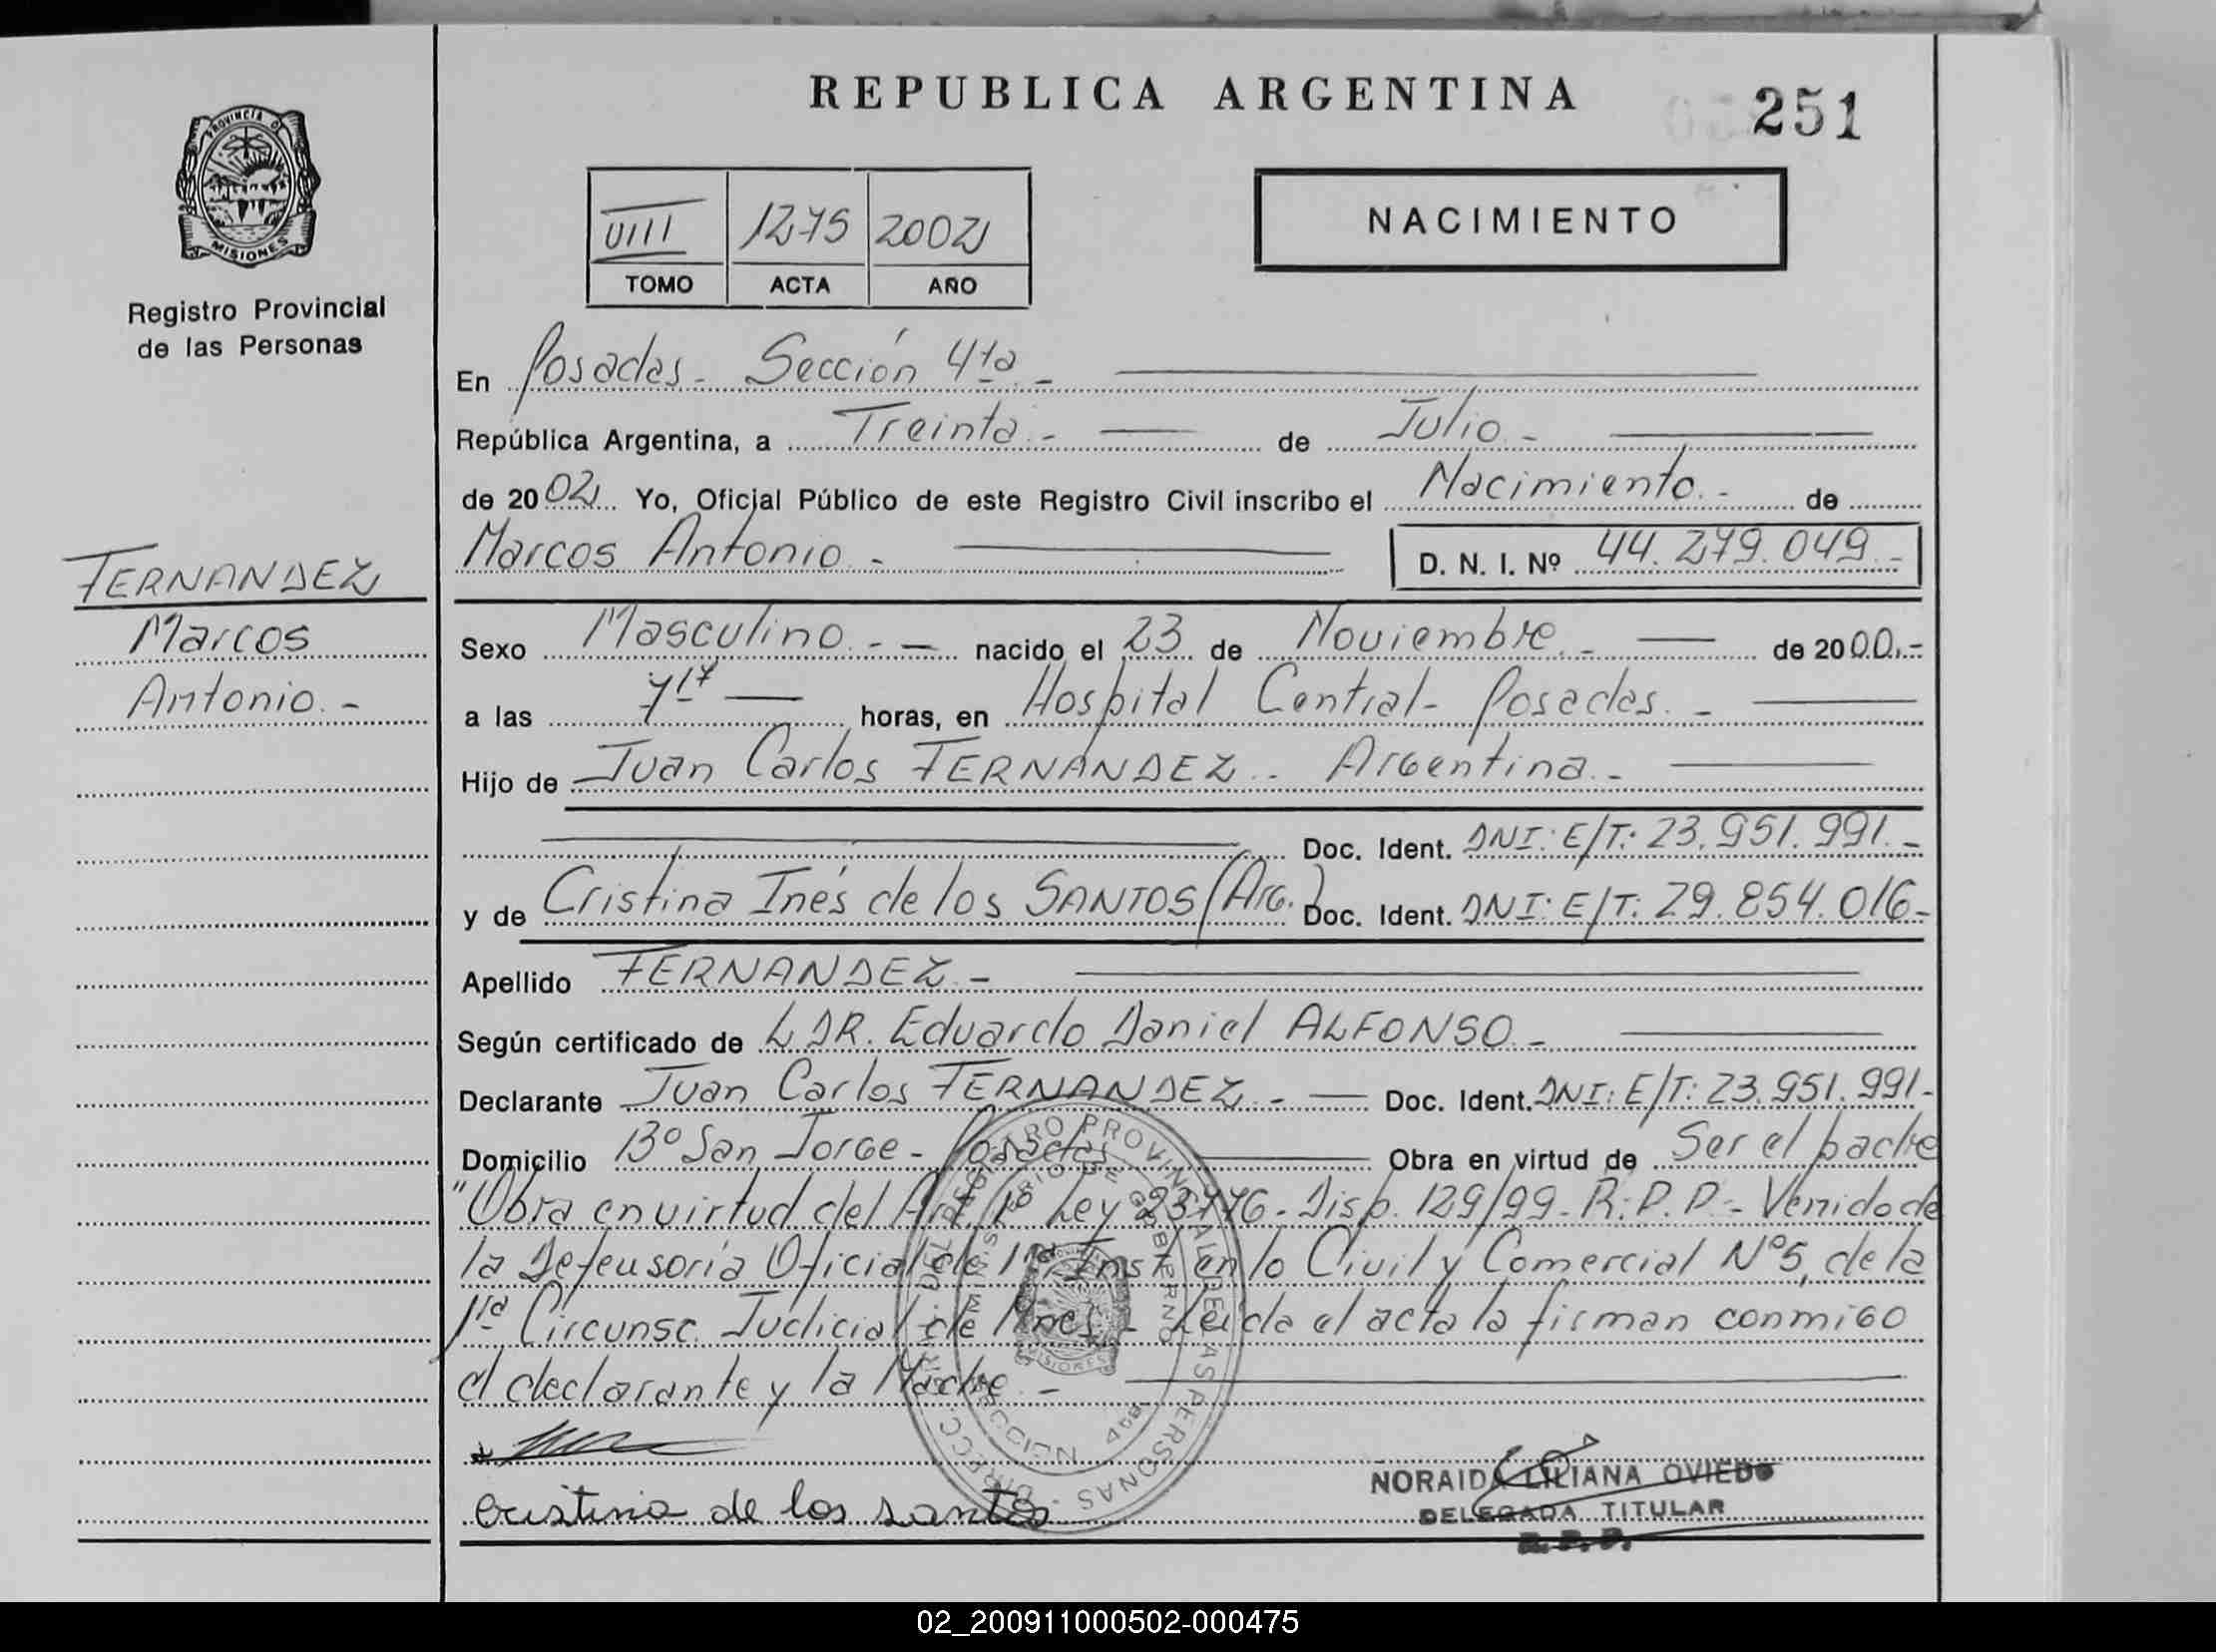 REPUBLICA ARGENTINA
251
PROVINCIA D
MISIONES
Registro Provincial
de las Personas
VIII 1275 2002
TOMO ACTA AÑO
NACIMIENTO
En Posadas - Sección 4ta -
República Argentina, a Treinta - de Julio -
de 2002 Yo, Oficial Público de este Registro Civil inscribo el Nacimiento - de
Marcos Antonio - D. N. I. Nº 44.279.049 -
FERNANDEZ
Marcos
Antonio. -
Sexo Masculino. - nacido el 23 de Noviembre. - de 2000.-
a las horas, en Hospital Central - Posadas. -
Hijo de Juan Carlos FERNANDEZ - Argentina. -
Doc. Ident. DNI: E/T: 23.951.991. -
y de Cristina Inés de los SANTOS (Arg.) Doc. Ident. DNI: E/T: 29.854.016 -
Apellido FERNANDEZ. -
Según certificado de DR. Eduardo Daniel ALFONSO. -
Declarante Juan Carlos FERNANDEZ. - Doc. Ident. DNI: E/T: 23.951.991 -
Domicilio Bº San Jorge - Posadas Obra en virtud de Ser el padre
"Obra en virtud del Art. 1º Ley 23776 - Disp. 129/99 - R.P.P. - Venido de
la Defensoría Oficial de 1ra Inst en lo Civil y Comercial Nº5, de la
1ra Circunsc. Judicial de Mnes - Leida el acta la firman conmigo
el declarante y la Madre. -
DIRECC. GRAL. DEL REGISTRO PROVINCIAL DE LAS PERSONAS
MINISTERIO DE GOBIERNO
SECCION 4ta
MISIONES
cristina de los santos
NORAIDA LILIANA OVIEDO
DELEGADA TITULAR
R. P. P.
02_200911000502-000475